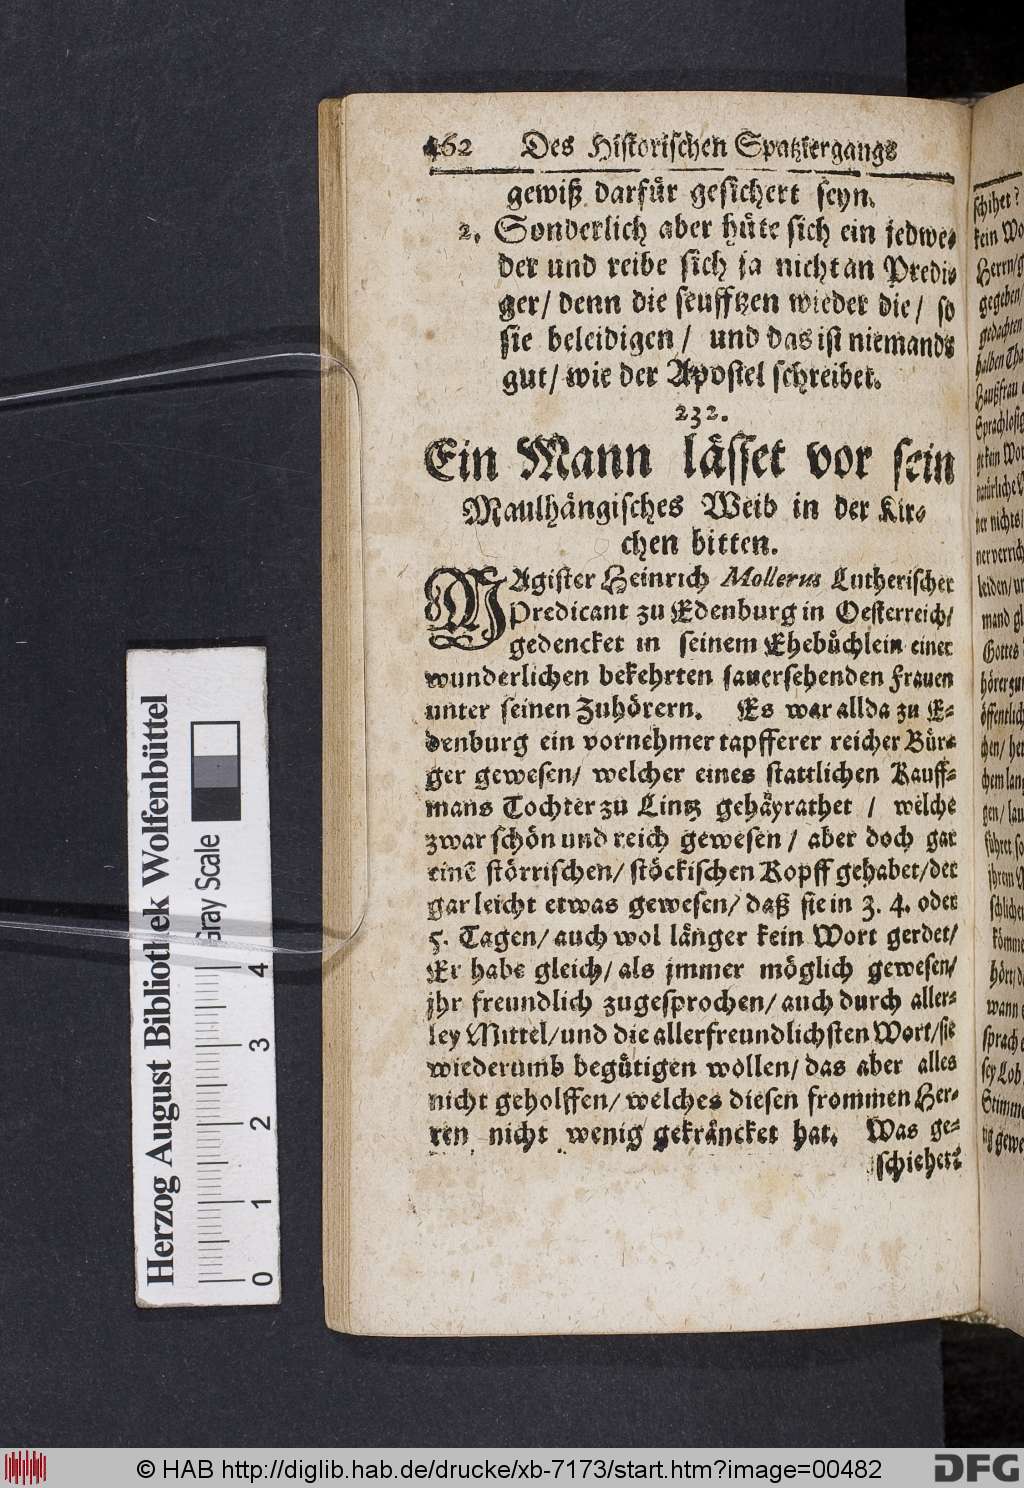 462 Des Historischen Spatziergangs
gewiß darfür gesichert seyn.
2. Sonderlich aber hüte sich ein jedwe-
der und reibe sich ja nicht an Predi-
ger/ denn die seufftzen wieder die/ so
sie beleidigen/ und das ist niemands
gut/ wie der Apostel schreibet.
232.
Ein Mann lässet vor sein
Maulhängisches Weib in der Kir-
chen bitten.
MAgister Heinrich Mollerus Lutherischer
Predicant zu Edenburg in Oesterreich/
gedencket in seinem Ehebüchlein einer
wunderlichen bekehrten sauersehenden Frauen
unter seinen Zuhörern. Es war allda zu E-
denburg ein vornehmer tapfferer reicher Bür-
ger gewesen/ welcher eines stattlichen Kauff-
mans Tochter zu Lintz gehäyrathet / welche
zwar schön und reich gewesen / aber doch gar
einē störrischen/ stöckischen Kopff gehabet/ der
gar leicht etwas gewesen/ daß sie in 3. 4. oder
5. Tagen/ auch wol länger kein Wort gerdet/
Er habe gleich/ als jmmer möglich gewesen/
jhr freundlich zugesprochen/ auch durch aller-
ley Mittel/ und die allerfreundlichsten Wort/ sie
wiederumb begütigen wollen/ das aber alles
nicht geholffen/ welches diesen frommen Her-
ren nicht wenig gekräncket hat. Was ge-
schiehet?
schihet?
kein
Herrn/
gegeben/
gedachten
halben
Haußfrau
nicht
leiden/
mand
Gottes
öffentlich
chen/
führet
ihrem
wann
sprach
sey Lob
Stimme
Herzog August Bibliothek Wolfenbüttel
Gray Scale
0 1 2 3 4
© HAB http://diglib.hab.de/drucke/xb-7173/start.htm?image=00482
DFG